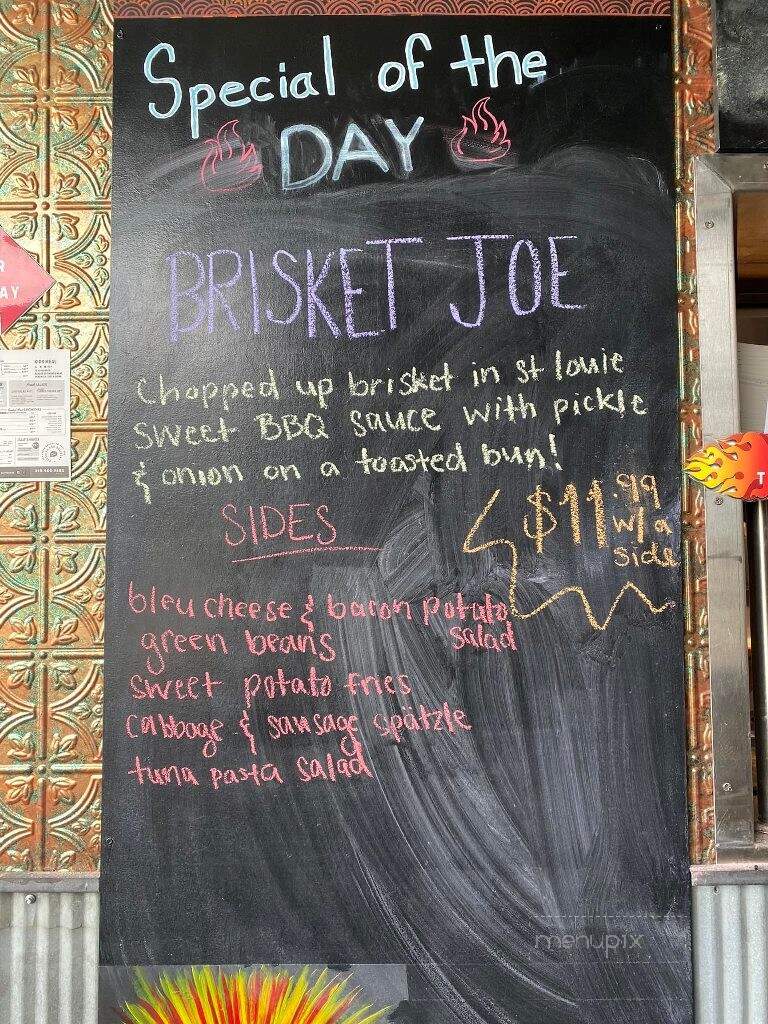 Special of the
DAY
BRISKET JOE
Chopped up brisket in st louie
sweet BBQ sauce with pickle
& onion on a toasted bun!
$11.99
w/a
side
SIDES
bleu cheese & bacon potato
salad
green beans
sweet potato fries
cabbage & sausage spätzle
tuna pasta salad
menupix